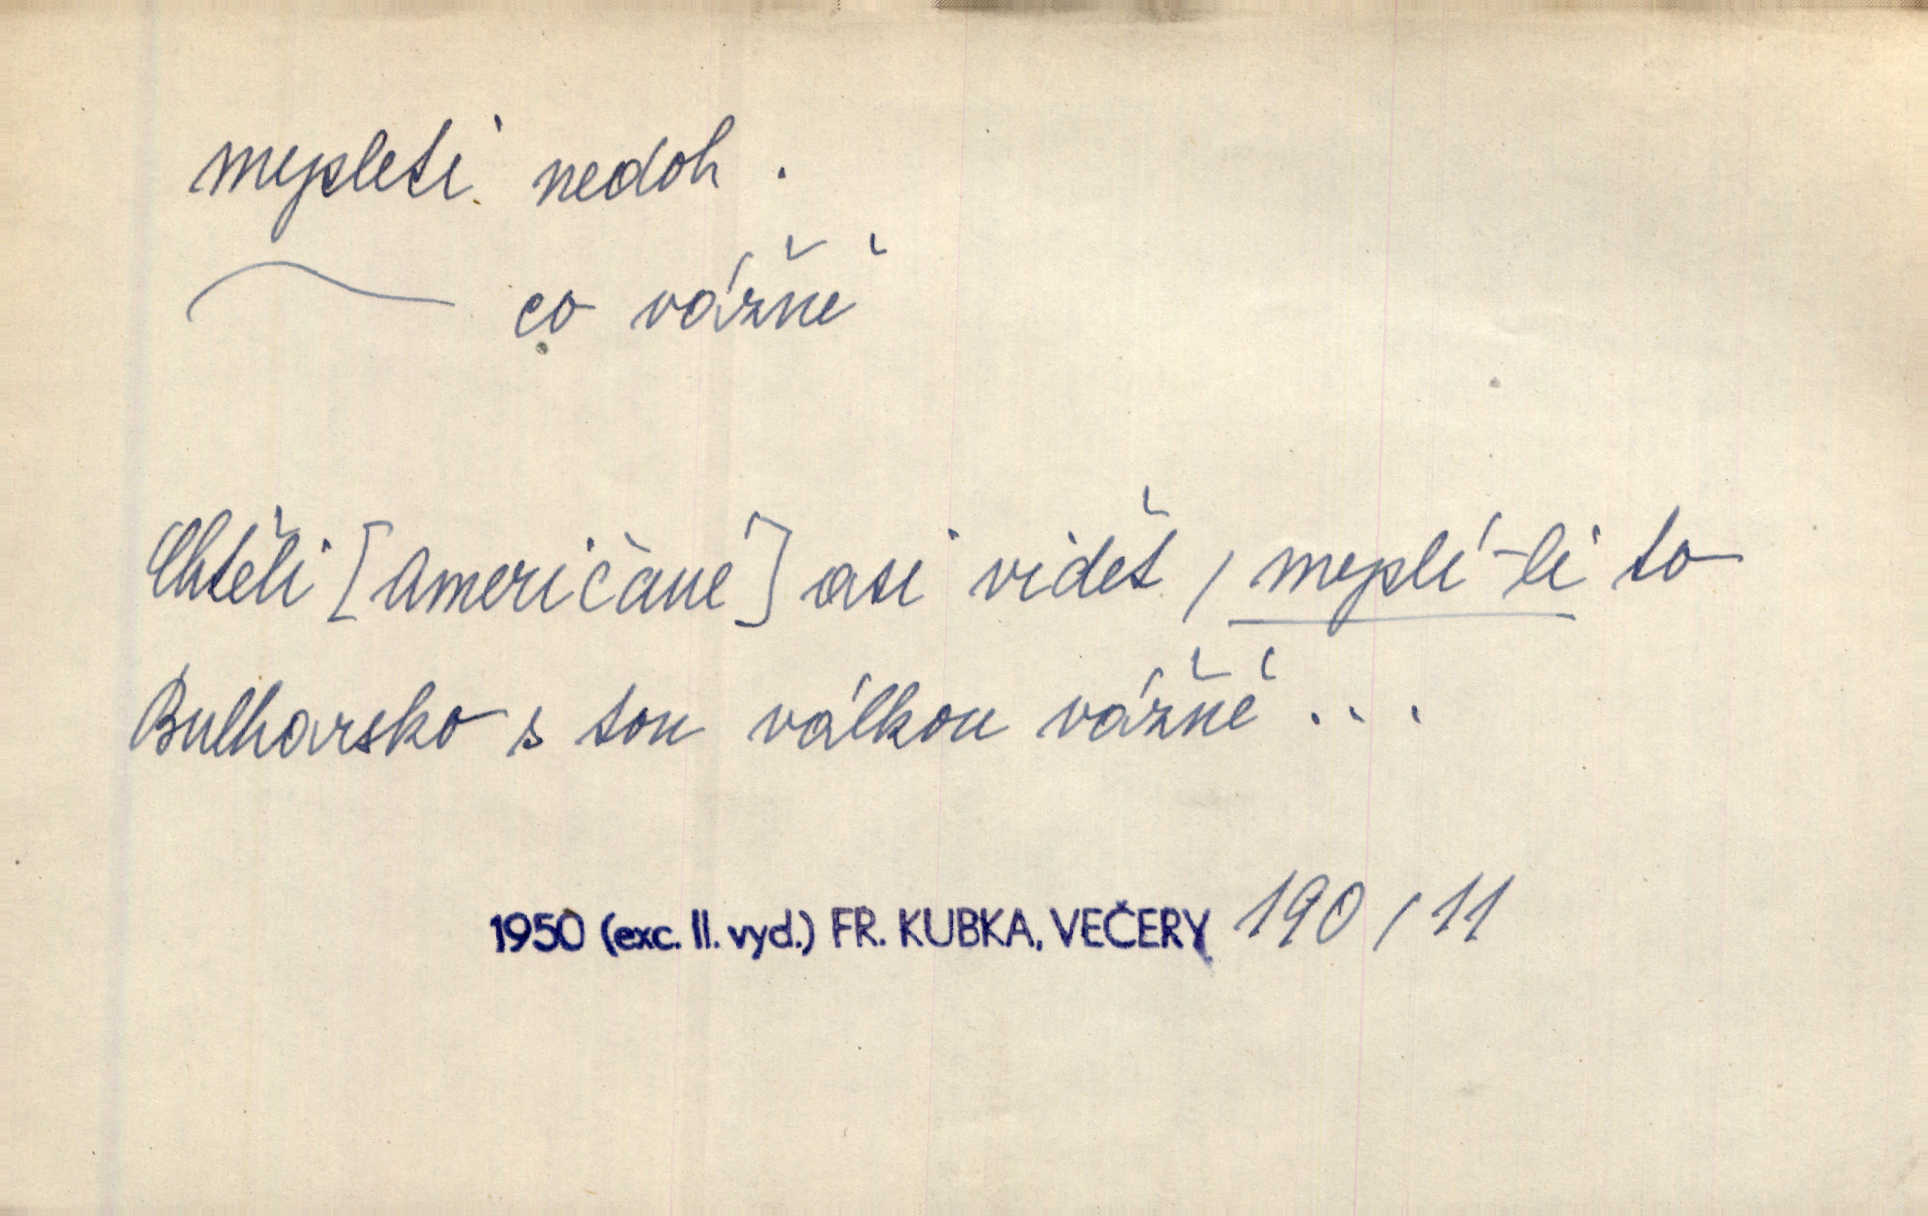 mysleti nedok.
co vážně
Chtěli [Američané] asi vidět, myslí-li to
Bulharsko s tou válkou vážně ...
1950 (exc. II. vyd.) FR. KUBKA, VEČERY 190/11